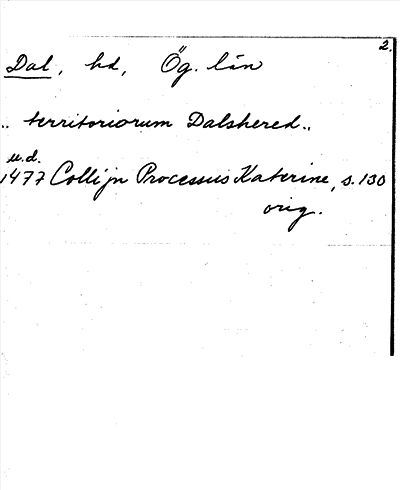 2.
Dal, hd, Ög. län
.. territoriorum Dalshered..
u.d.
1477 Collijn Processus Katerine, s. 130
orig.